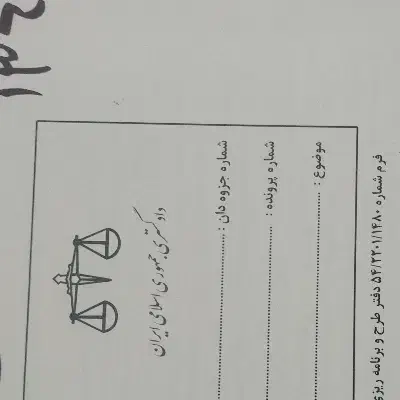 دادگستری جمهوری اسلامی ایران
شماره جزوه دان :
شماره پرونده :
موضوع :
فرم شماره ۵۴/۲۲۰۱/۱۴۸۰ دفتر طرح و برنامه ریزی